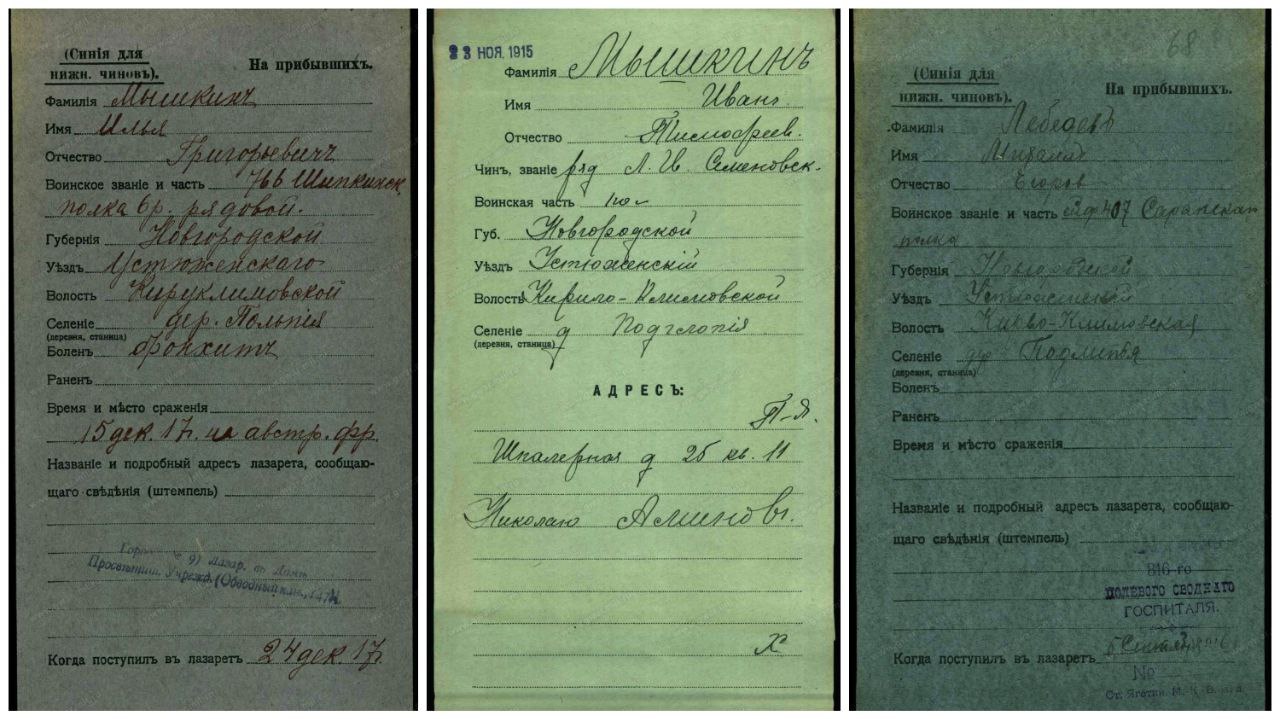 (Синія для
нижн. чиновъ).
На прибывшихъ.
Фамилія Мышкинъ
Имя Илья
Отчество Григорьевичъ
Воинское званіе и часть 146 Шипкинск
полка 6р. рядовой.
Губернія Новгородской
Уѣздъ Устюженскаго
Волость Кируклимовской
Селеніе дер. Польпія
(деревня, станица)
Боленъ бронхитъ
Раненъ
Время и мѣсто сраженія
15 дек. 17г. на австр. фр.
Названіе и подробный адресъ лазарета, сообщаю-
щаго свѣдѣнія (штемпель)
Лазар.
Просвѣтит. Учрежд. (Обводный кан.,
Когда поступилъ въ лазаретъ 24 дек. 17г.
23 НОЯ. 1915
Фамилія Мышкинъ
Имя Иванъ.
Отчество Тимофеев.
Чинъ, званіе ряд Л. Гв. Семеновск.
Воинская часть пол
Губ. Новгородской
Уѣздъ Устюженскій
Волость Кирило-Климовской
Селеніе д Подчелопія
(деревня, станица)
АДРЕСЪ:
П-д.
Шпалерная д 26 кв. 11
Николаю Аминовъ.
х
68
(Синія для
нижн. чиновъ).
На прибывшихъ.
Фамилія Лебедевъ
Имя Михаилъ
Отчество Егоров
Воинское званіе и часть 407 Сарапскаго
полка
Губернія Новгородской
Уѣздъ Устюженскій
Волость Кирово-Климовская
Селеніе дер Подлипья
(деревня, станица)
Боленъ
Раненъ
Время и мѣсто сраженія
Названіе и подробный адресъ лазарета, сообщаю-
щаго свѣдѣнія (штемпель)
816-го
ПОЛЕВОГО СВОДНАГО
ГОСПИТАЛЯ.
Когда поступилъ въ лазаретъ 5 Сентября 916
№